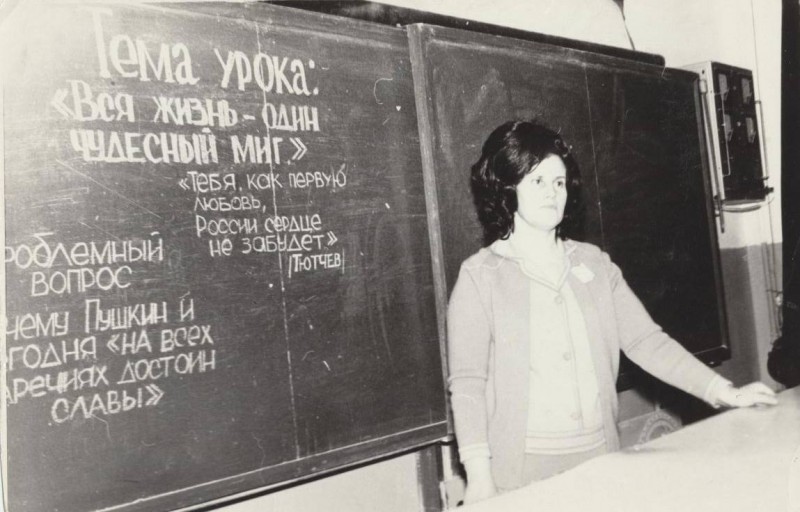 Тема урока:
«Вся жизнь – один
чудесный миг.»
«Тебя, как первую
любовь,
России сердце
не забудет»
/Тютчев/
роблемный
вопрос
чему Пушкин и
егодня «на всех
аречиях достоин
славы»